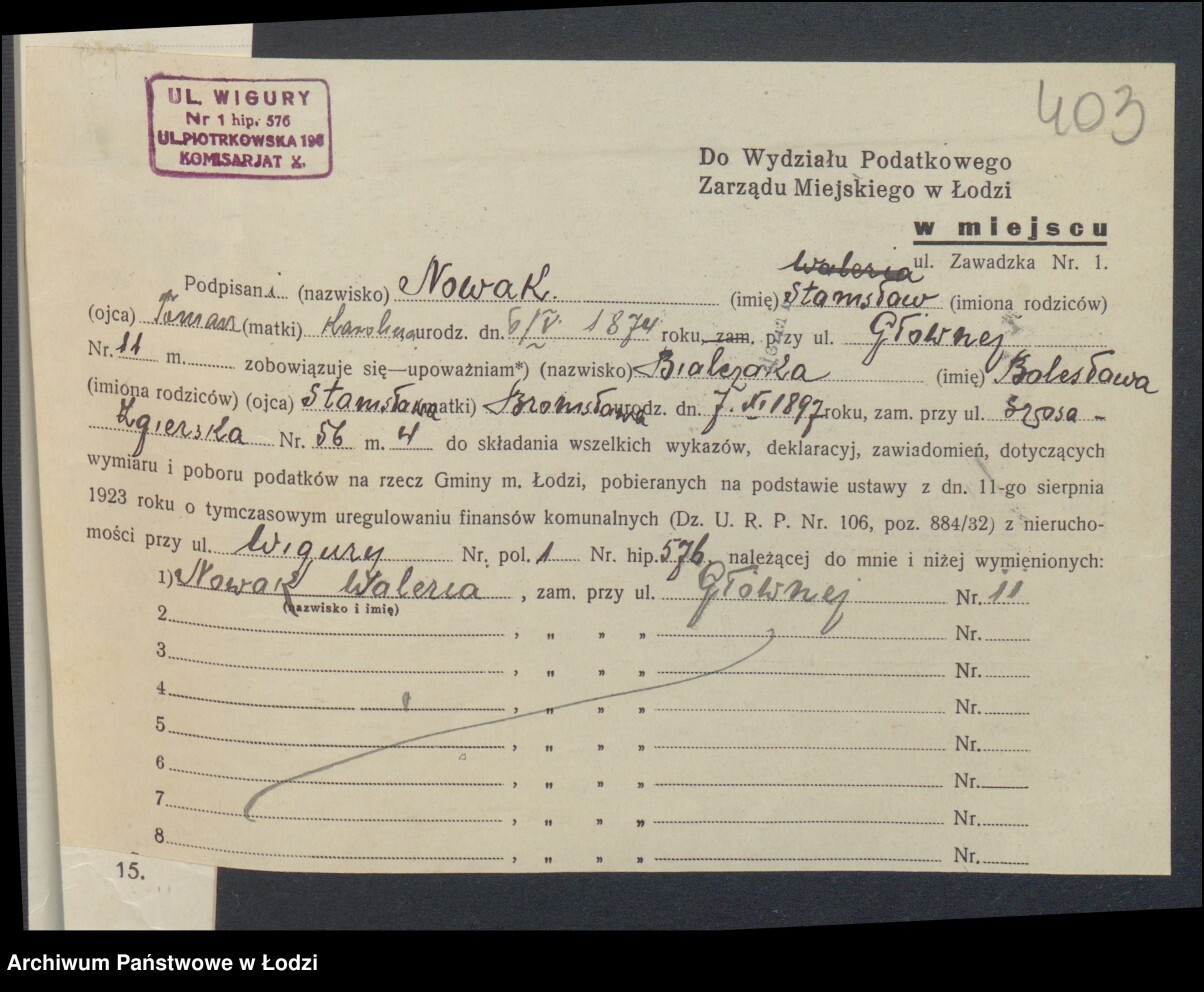 UL. WIGURY
Nr 1 hip. 576
UL.PIOTRKOWSKA 196
KOMISARJAT X.
403
Do Wydziału Podatkowego
Zarządu Miejskiego w Łodzi
w miejscu
ul. Zawadzka Nr. 1.
Waleria
Podpisani (nazwisko) Nowak. (imię) Stanisław (imiona rodziców)
(ojca) Roman (matki) Karolina urodz. dn. 6/V. 1874 roku, zam. przy ul. Głównej
Nr. 11 m. zobowiązuje się—upoważniam*) (nazwisko) Bialczaka (imię) Bolesława
(imiona rodziców) (ojca) Stanisława (matki) Bronisława urodz. dn. 7. XI. 1897 roku, zam. przy ul. Szosa -
Zgierska Nr. 56 m. 4 do składania wszelkich wykazów, deklaracyj, zawiadomień, dotyczących
wymiaru i poboru podatków na rzecz Gminy m. Łodzi, pobieranych na podstawie ustawy z dn. 11-go sierpnia
1923 roku o tymczasowym uregulowaniu finansów komunalnych (Dz. U. R. P. Nr. 106, poz. 884/32) z nierucho-
mości przy ul. Wigury Nr. pol. 1 Nr. hip. 576, należącej do mnie i niżej wymienionych:
1) Nowak Waleria , zam. przy ul. Głównej Nr. 11
(nazwisko i imię)
2 , „ „ „ Nr.
3 , „ „ „ Nr.
4 , „ „ „ Nr.
5 , „ „ „ Nr.
6 , „ „ „ Nr.
7 , „ „ „ Nr.
8 , „ „ „ Nr.
15.
Archiwum Państwowe w Łodzi